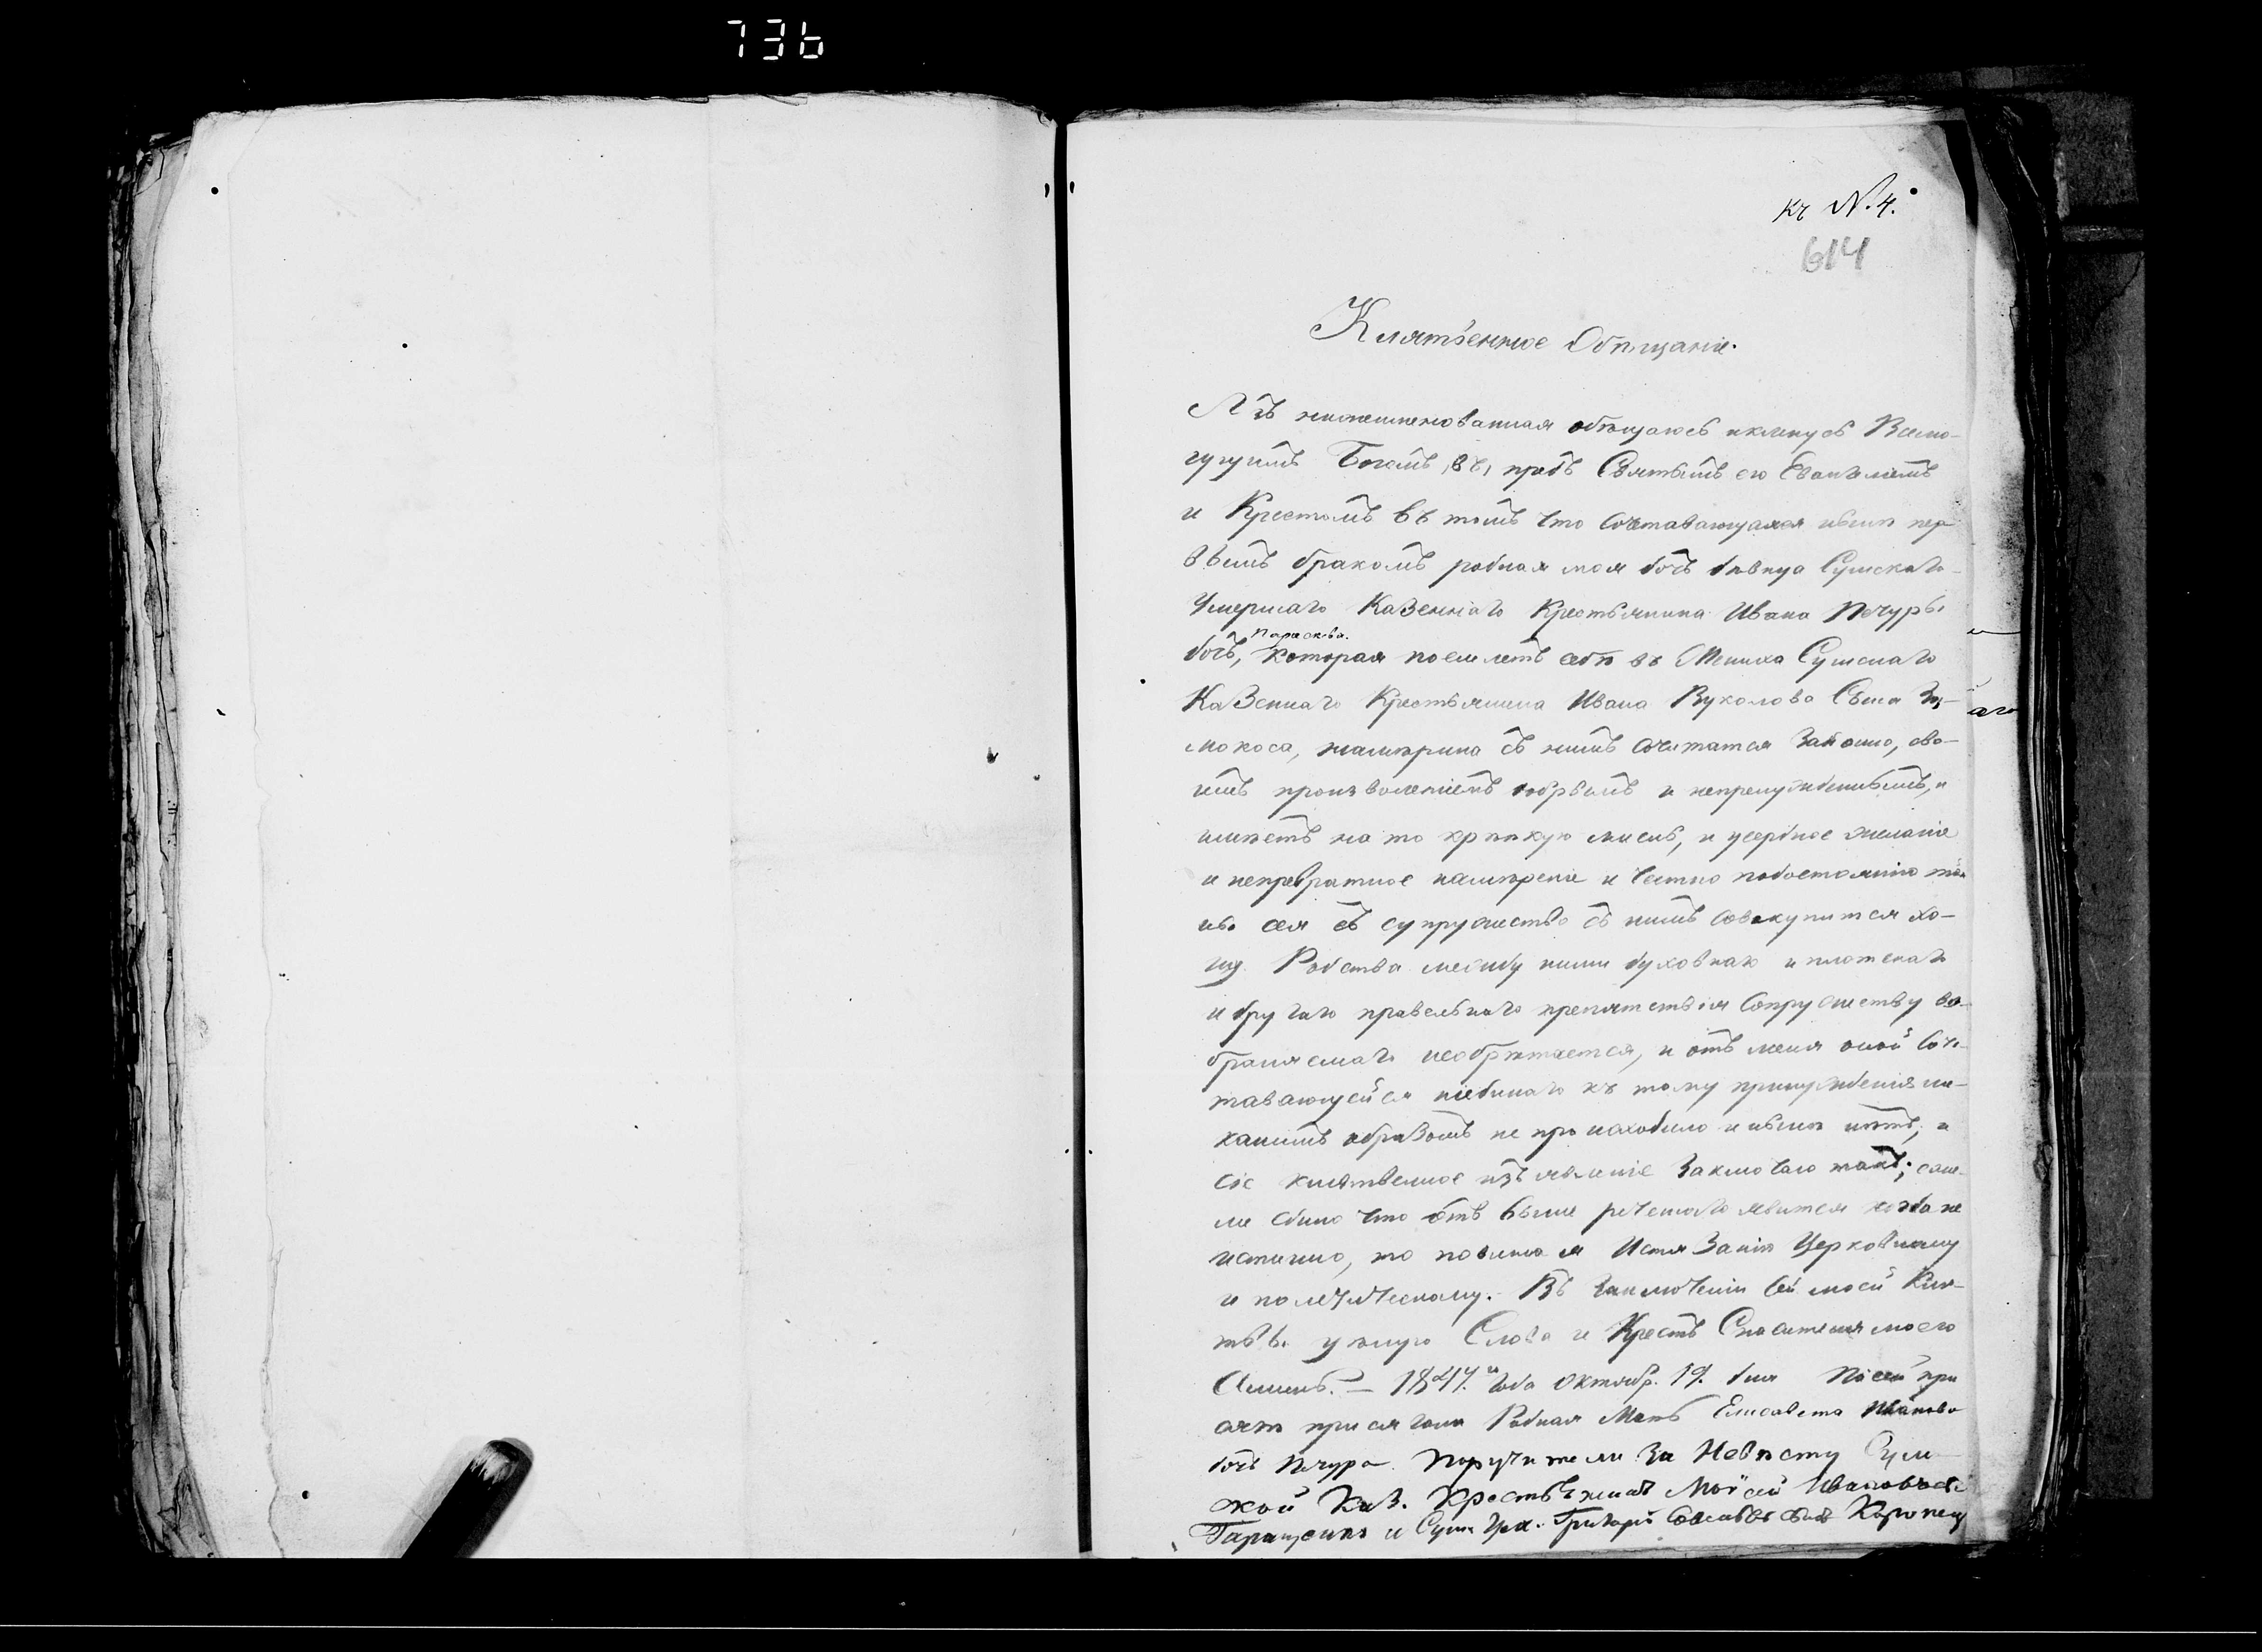 736
къ N. 4.
614
Клятвенное Обѣщаніе.
Азъ нижеименованная обѣщаюсь и кленусь Всемо-
гущимъ Богомъ, въ, предъ Святымъ его Евангелiемъ
и Крестомъ въ томъ что сочетавающаяся нынѣ пер
вымъ бракомъ родная моя дочь дѣвица Сумскаго
Умершаго Казеннаго Крестьянина Ивана Печуры
дочь, Параскева. которая поемлетъ себѣ въ Мениха Сумскаго
Казеннаго Крестьянина Ивана Вуколова Сына
мокоса, намѣрина съ нимъ сочетатся законно, сво-
имъ произволеніемъ добрымъ и непренужденнымъ, и
имѣетъ на то крѣпкую мысль, и усердное желаніе
и непревратное намѣреніе и честно подостоянію
сея въ супружество съ нимъ совокупится хо-
щу. Родства между ними духовнаго и плотскаго
и другаго правельнаго препятствія сопружеству во-
браняемаго необрѣтается, и отъ меня оной соче-
тавающейся нiединаго къ тому принужденія ни-
какимъ образомъ не происходило и нынѣ нѣтъ, и
сіе клятвенное изъявленіе заключаю такъ; еже-
ли едино что отъ выше реченаго явится когда не
истинно, то повинна я Истязанію Церковному
и полетическому. Въ заключеніи сей моей Кля-
твы цѣлую Слова и Крестъ Спасителя моего
Аминь. — 1847. года октябр. 19. дня По сей при
сягѣ присягала Родная Мать Елисавета Иванова
дочь Печура. Поручители за Невѣсту Сум-
ской Каз. Крестьянинъ Моѵсей Ивановъ
Таращенко и Сум. Григорій